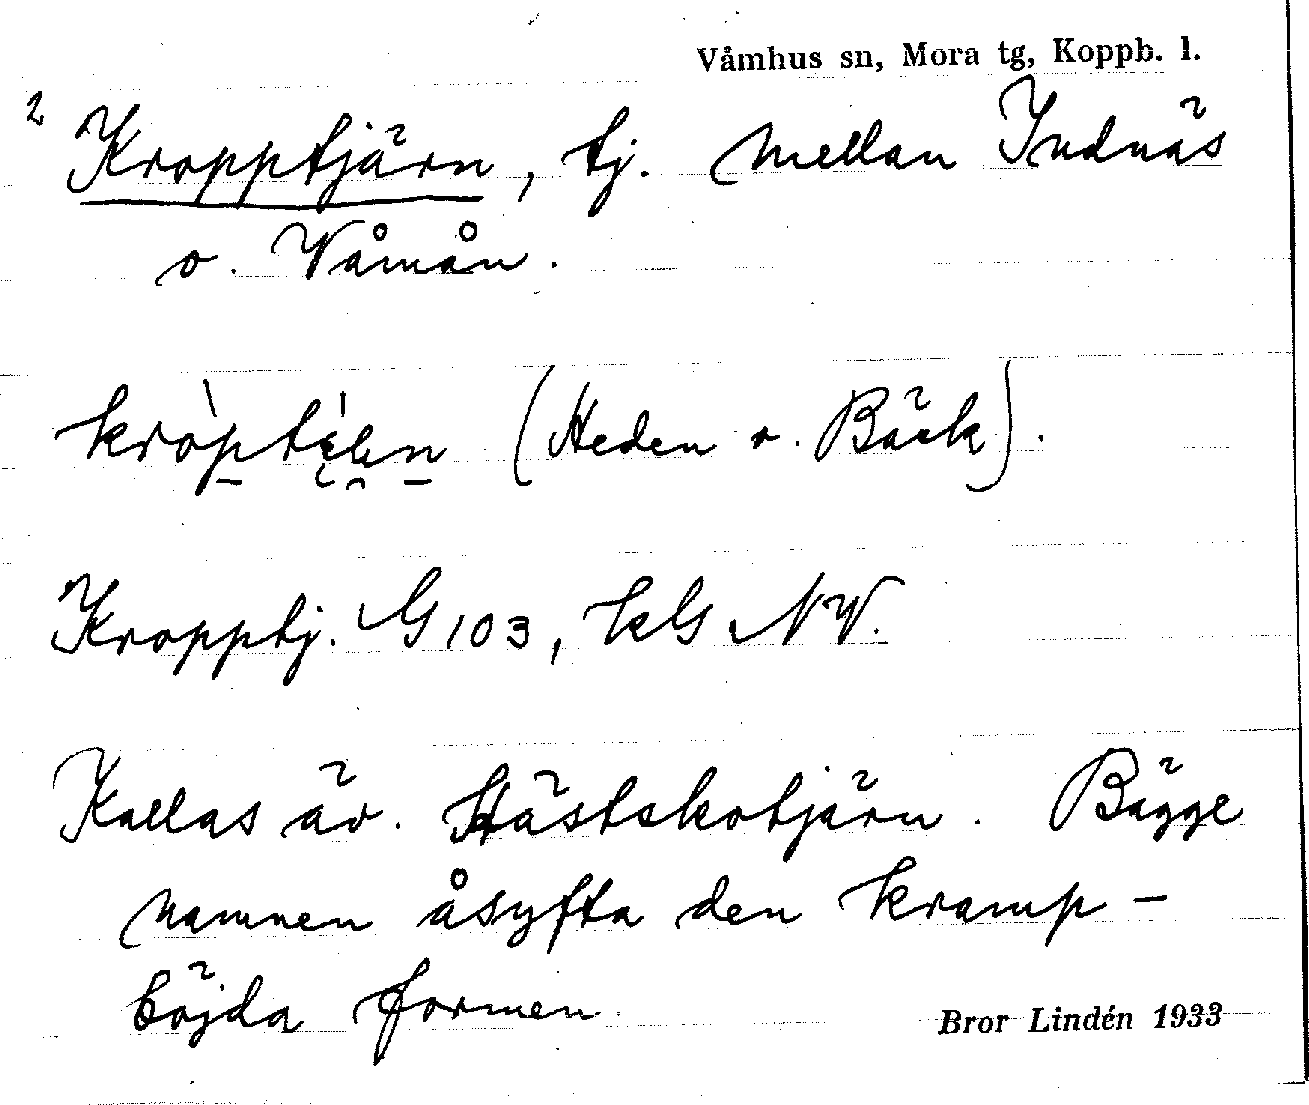 Våmhus sn, Mora tg, Koppb. l.
2 Kropptjärn, tj. mellan Indnäs
o. Våmån.
(Heden o. Bäck).
Kropptj. G 103, kbl NV.
Kallas äv. Hästskotjärn. Bägge
namnen åsyfta den kramp-
böjda formen
Bror Lindén 1933